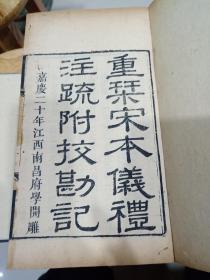 重栞宋本儀禮
注疏附挍勘記
嘉慶二十年江西南昌府學開雕